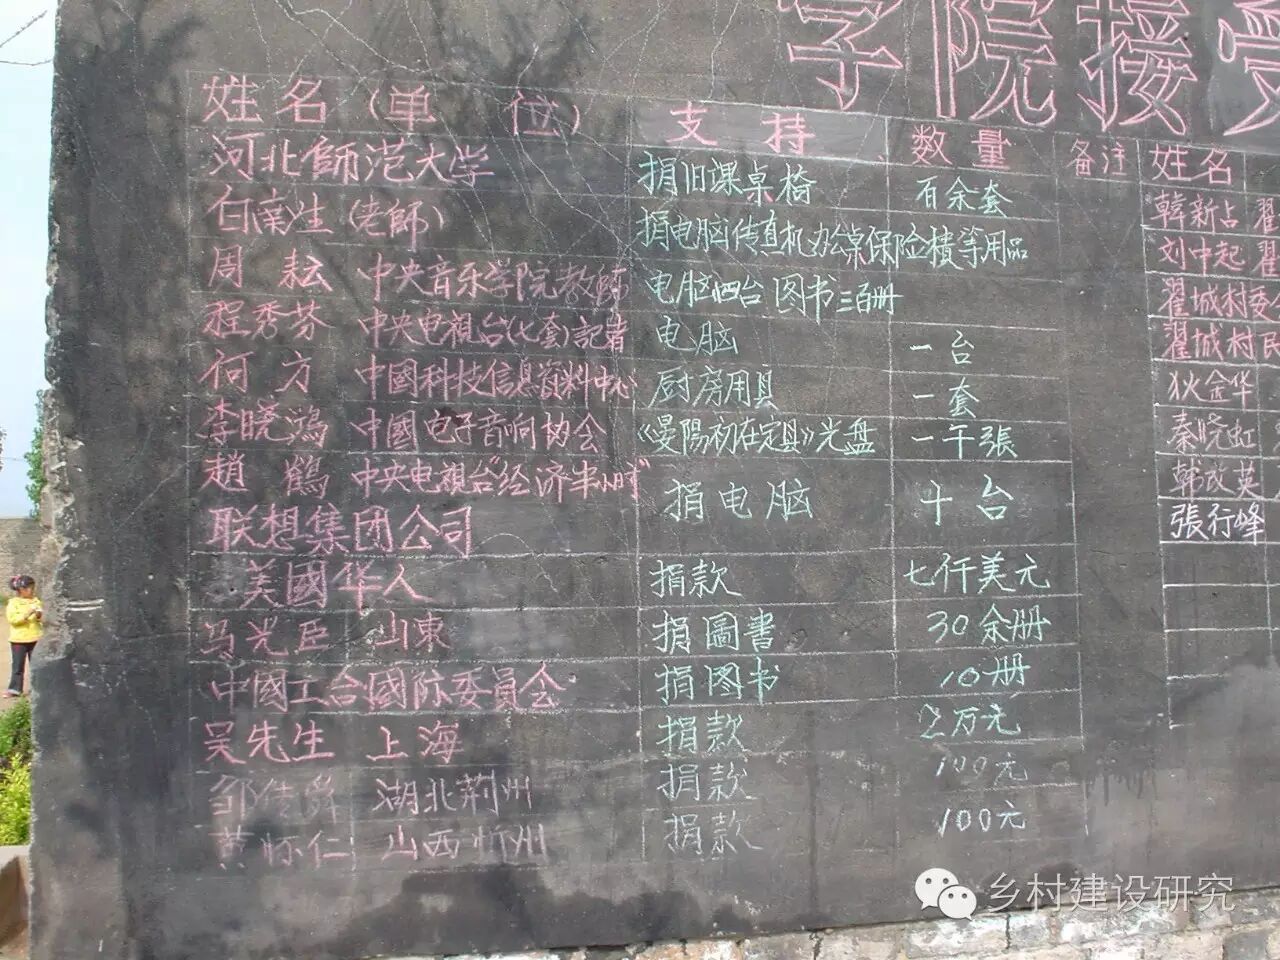 学院接受
姓名(单位) 支持 数量 备注 姓名
河北師范大学 捐旧课桌椅 百余套
白南生(老師) 捐电脑传真机办公桌保险櫃等用品
周耘 中央音乐学院教師 电脑四台 图书三百册
程秀芬 中央电視台(七套)記者 电脑 一台
何方 中國科技信息資料中心 厨房用具 一套
李曉鴻 中國电子音响协会 《晏陽初在定县》光盘 一千張
趙鶴 中央电視台"经济半小时" 捐电脑 十台
联想集团公司
美國华人 捐款 七仟美元
马光臣 山東 捐圖書 30余册
中國工合國际委員会 捐图书 10册
吴先生 上海 捐款 2万元
邹 湖北荊州 捐款 100元
黄怀仁 山西忻州 捐款 100元
韓新占 翟
刘中起 翟
翟城村委会
翟城村民
狄金华
秦晓虹
韩改英
張行峰
乡村建设研究